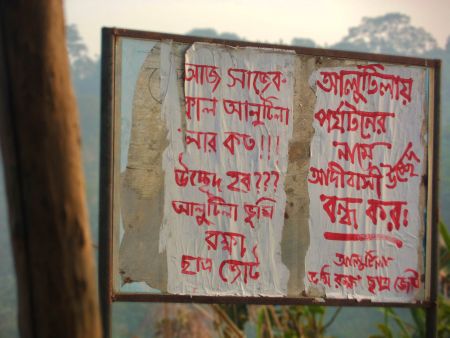 আজ সাজেক
কাল আলুটিলা
আর কত!!!
উচ্ছেদ হব???
আলুটিলা ভূমি
রক্ষা
ছাত্র জোট
আলুটিলায়
পর্যটনের
নামে
আদীবাসী উচ্ছেদ
বন্ধ কর!
আলুটিলা
ভূমি রক্ষা ছাত্র জোট